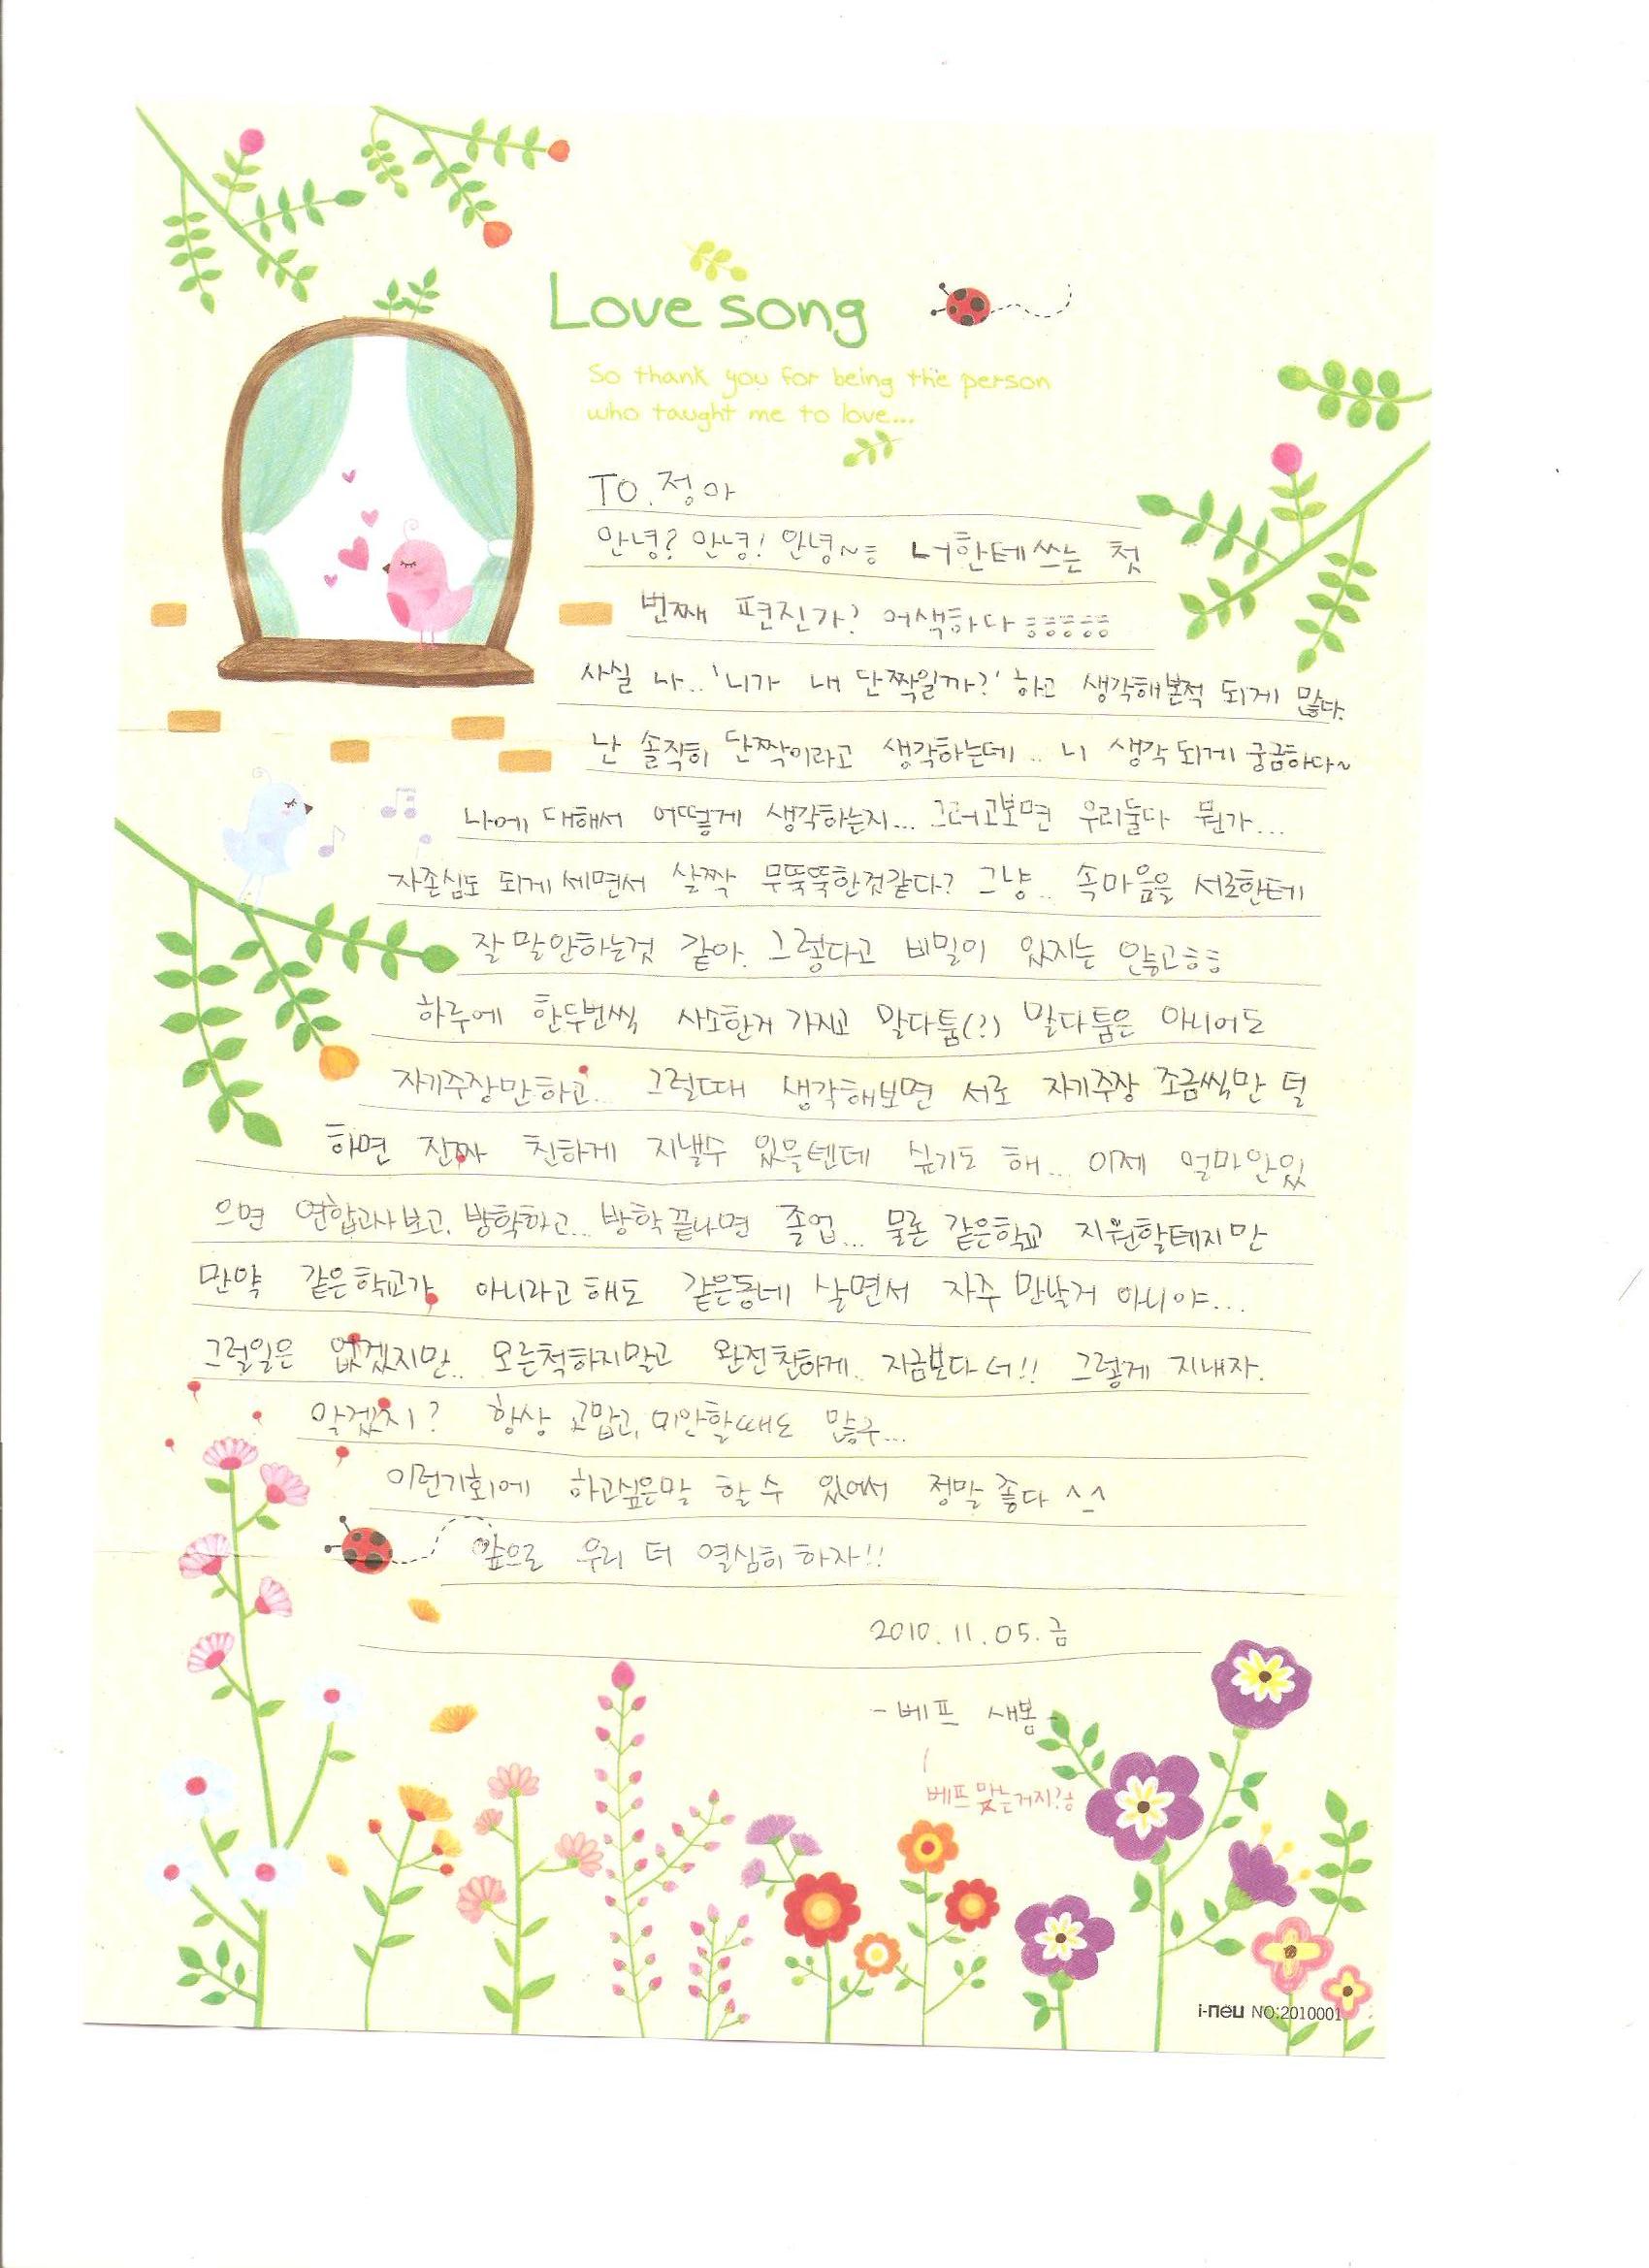 Love song
So thank you for being the person
who taught me to love...
TO. 정아
안녕? 안녕! 안녕~ㅎ 너한테쓰는 첫
번째 편진가? 어색하다ㅎㅎㅎㅎㅎ
사실 나.. '니가 내 단짝일까?' 하고 생각해본적 되게 많다.
난 솔직히 단짝이라고 생각하는데.. 니 생각 되게 궁금하다~
나에 대해서 어떻게 생각하는지... 그러고보면 우리둘다 뭔가...
자존심도 되게 세면서 살짝 무뚝뚝한것같다? 그냥.. 속마음을 서로한테
잘 말안하는것 같아. 그렇다고 비밀이 있지는 않고ㅎㅎ
하루에 한두번씩 사소한거 가지고 말다툼(?) 말다툼은 아니어도
자기주장만하고... 그럴때 생각해보면 서로 자기주장 조금씩만 덜
하면 진짜 친하게 지낼수 있을텐데 싶기도 해... 이제 얼마안있
으면 연합고사보고, 방학하고... 방학끝나면 졸업... 물론 같은학교 지원할테지만
만약 같은학교가 아니라고 해도 같은동네 살면서 자주 만날거 아니야...
그럴일은 없겠지만.. 모른척하지말고 완전친하게.. 지금보다 더!! 그렇게 지내자.
알겠지? 항상 고맙고, 미안할때도 많구...
이런기회에 하고싶은말 할 수 있어서 정말 좋다 ^_^
앞으로 우리 더 열심히 하자!!
2010. 11. 05. 금
- 베프 새봄 -
베프 맞는거지?ㅎ
i-neu NO:2010001